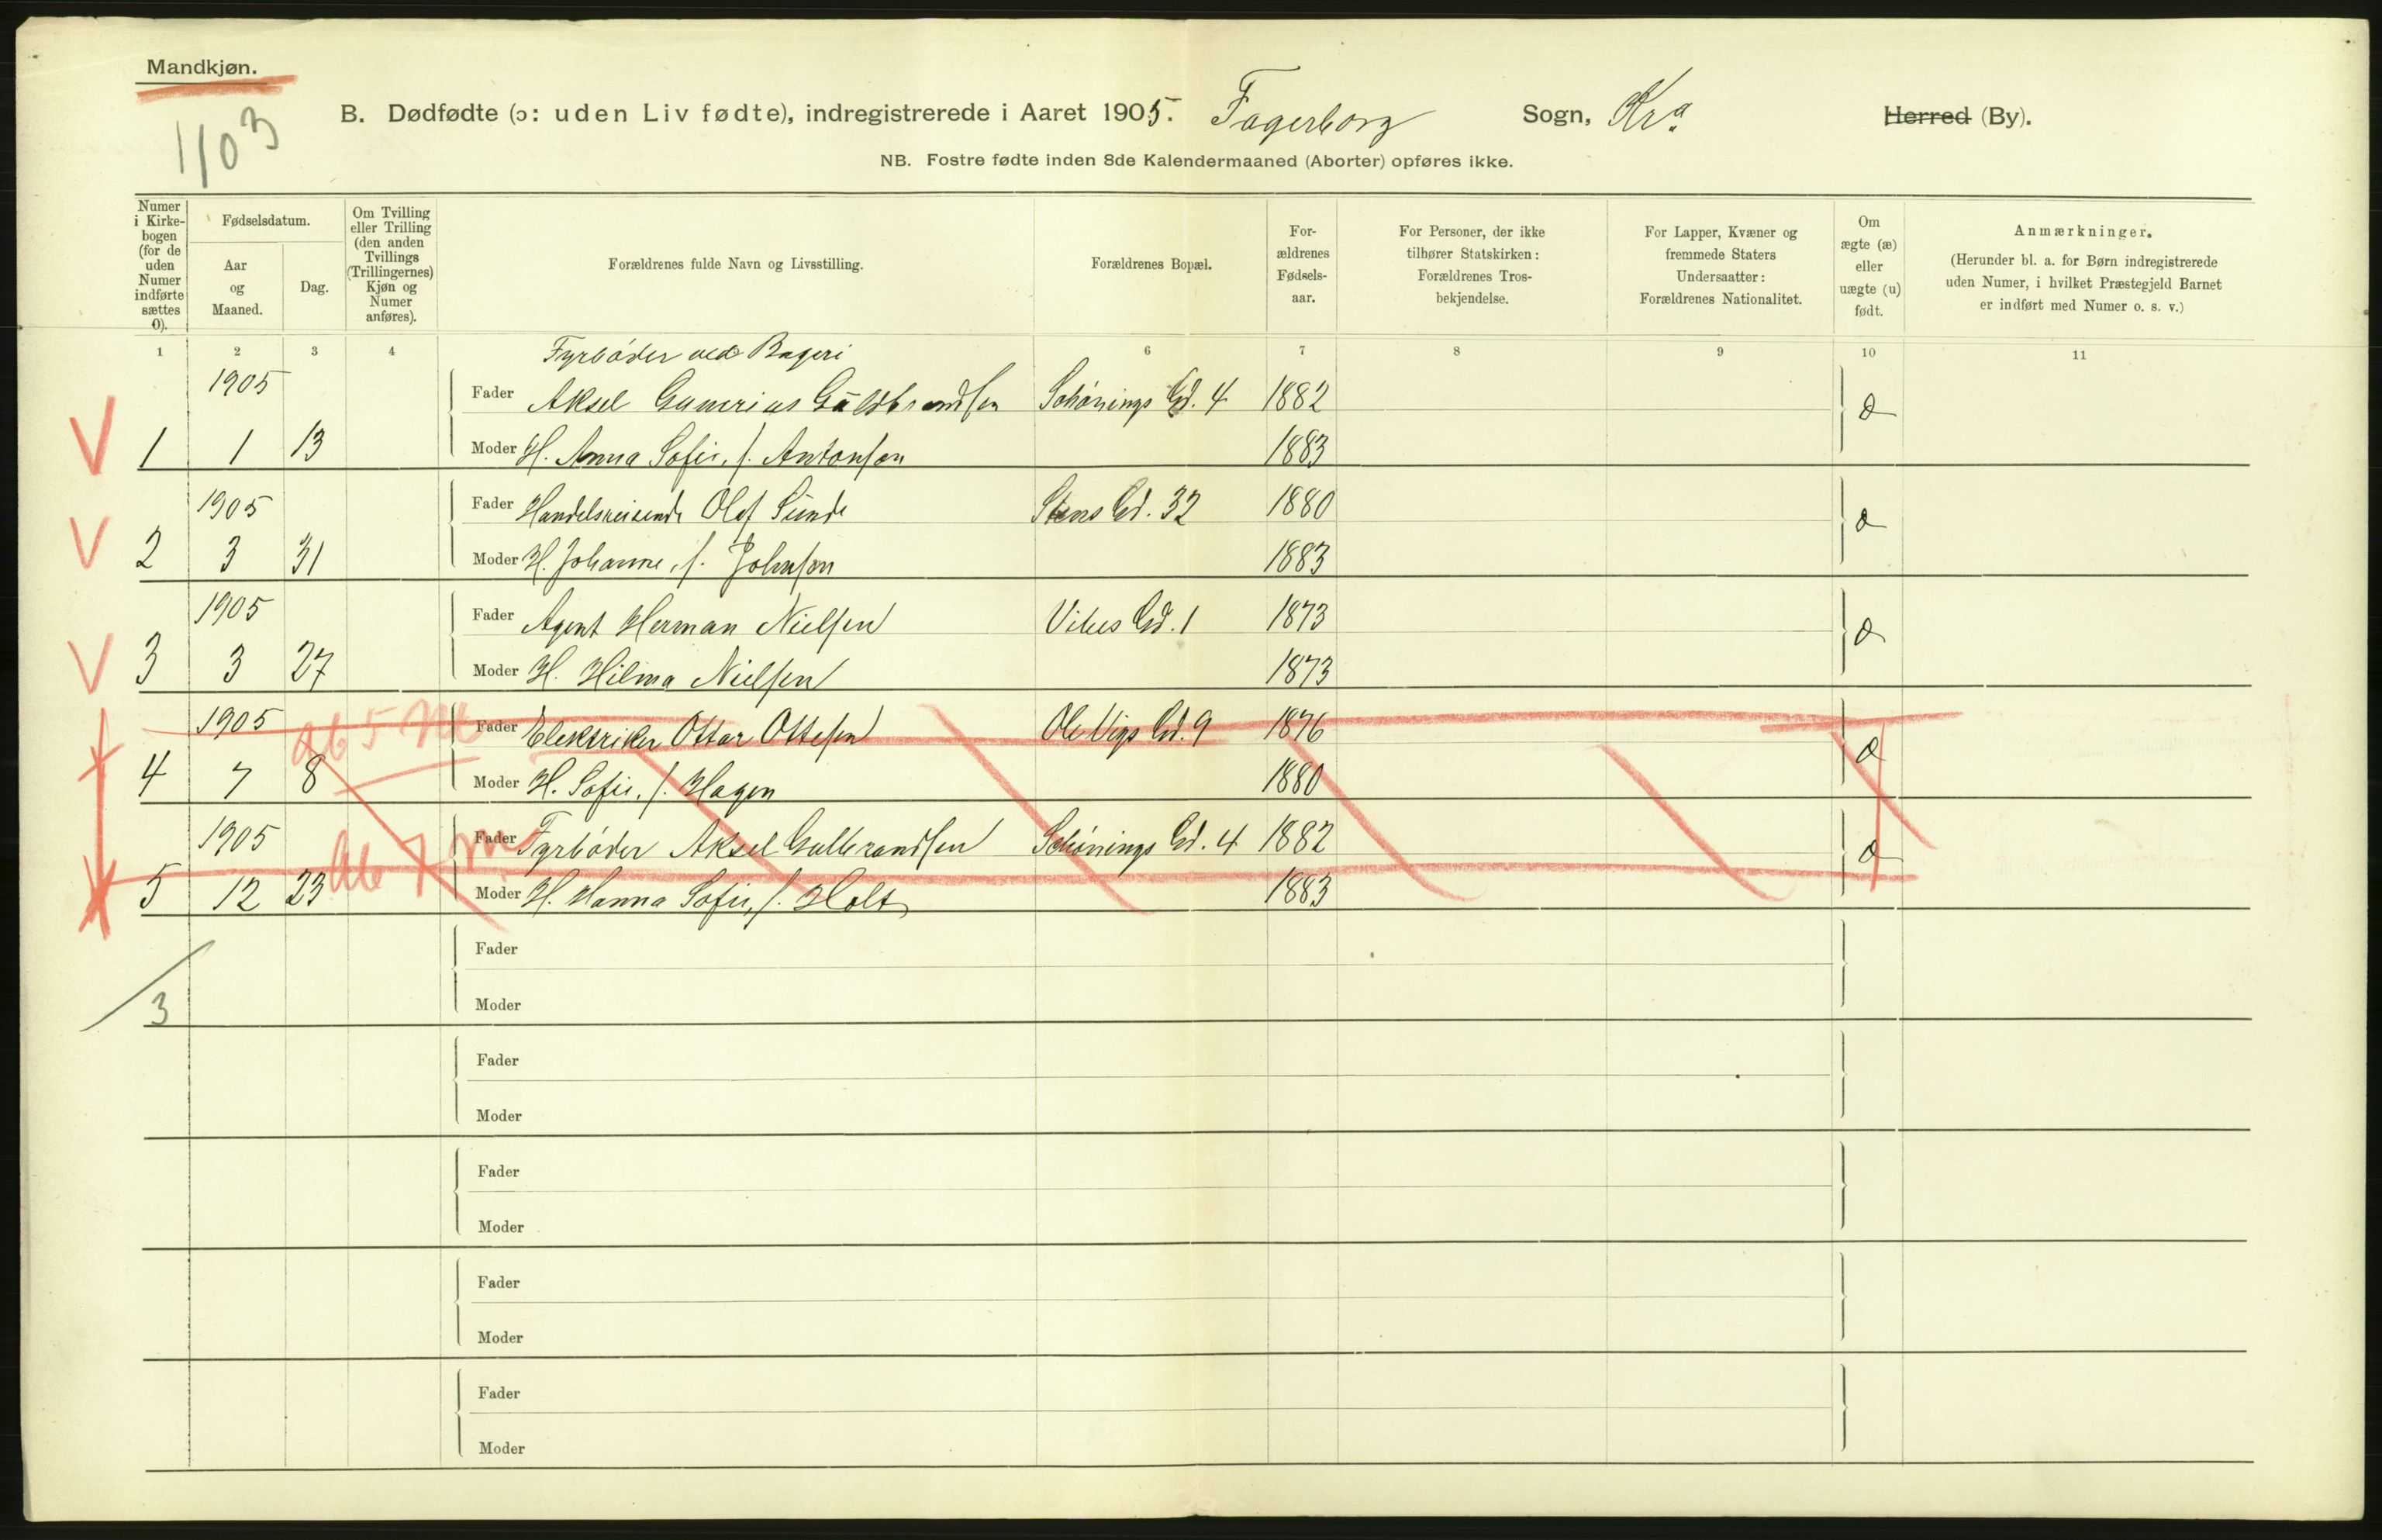 Mandkjøn.
1103
B. Dødfødte (ɔ: uden Liv fødte), indregistrerede i Aaret 1905. Fagerborg Sogn, Kra. Herred (By).
NB. Fostre fødte inden 8de Kalendermaaned (Aborter) opføres ikke.
Numer i Kirkebogen (for de uden Numer indførte sættes 0).
Fødselsdatum.
Aar og Maaned.
Dag.
Om Tvilling eller Trilling (den anden Tvillings (Trillingernes) Kjøn og Numer anføres).
Forældrenes fulde Navn og Livsstilling.
Forældrenes Bopæl.
Forældrenes Fødselsaar.
For Personer, der ikke tilhører Statskirken: Forældrenes Trosbekjendelse.
For Lapper, Kvæner og fremmede Staters Undersaatter: Forældrenes Nationalitet.
Om ægte (æ) eller uægte (u) født.
Anmærkninger.
(Herunder bl. a. for Børn indregistrerede uden Numer, i hvilket Præstegjeld Barnet er indført med Numer o. s. v.)
1 2 3 4 6 7 8 9 10 11
Fyrbøder ved Bageri
1905 Fader Aksel Gunerius Guldbrandsen Schønings Gd. 4 1882 æ
V 1 1 13 Moder H. Anna Sofie, f. Antonsen 1883
1905 Fader Handelsreisende Olef Sunde Stens Gd. 32 1880 æ
V 2 3 31 Moder H. Johanne, f. Johnsen 1883
1905 Fader Agent Herman Nielsen Vibes Gd. 1 1873 æ
V 3 3 27 Moder H. Hilma Nielsen 1873
1905 Ab 5 M Fader Elektriker Ottar Ottesen Ole Vigs Gd. 9 1876 æ
4 7 8 Moder H. Sofie, f. Hagen 1880
1905 Fader Fyrbøder Aksel Gulbrandsen Schønings Gd. 4 1882 æ
5 12 23 Ab 7 m Moder H. Hanna Sofie, f. Holt 1883
Fader
3 Moder
Fader
Moder
Fader
Moder
Fader
Moder
Fader
Moder